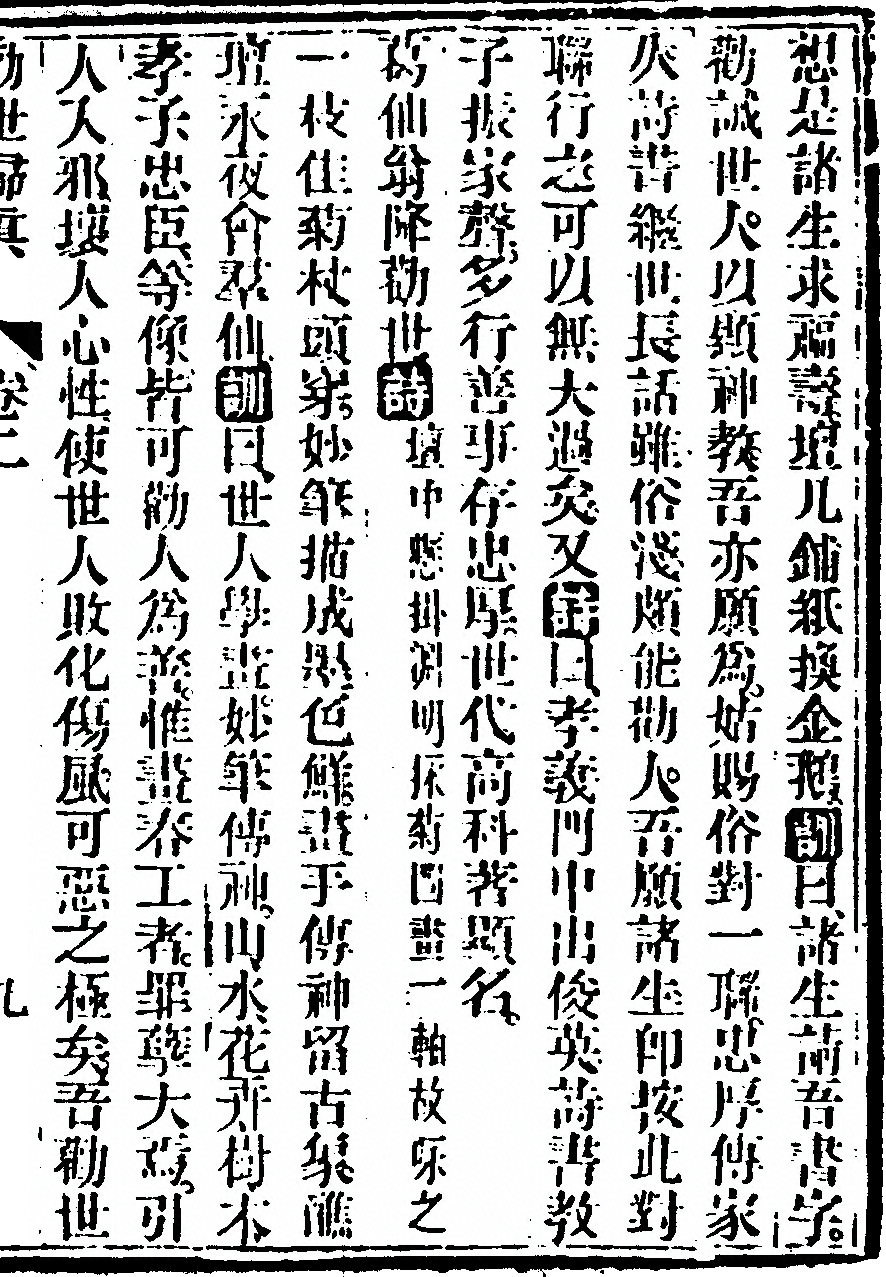 想是諸生求福壽壇几鋪紙換金鵝訓曰諸生請吾書字
勸誡世人以顯神教吾亦願為姑賜俗對一聯忠厚傳家
久詩書繼世長話雖俗淺頗能勸人吾願諸生即按此對
聯行之可以無大過矣又曰孝義門中出俊英詩書教
子振家聲多行善事存忠厚世代高科著顯名
葛仙翁降勸世詩壇中懸掛淵明採菊圖畫一軸故咏之
一枝佳菊杖頭穿妙筆描成墨色鮮畫手傳神留古集醮
壇永夜會羣仙訓曰世人學畫妙筆傳神山水花卉樹木
孝子忠臣等像皆可勸人為善惟畫春工者罪孽大焉引
人入邪壞人心性使世人敗化傷風可惡之極矣吾勸世
勸世歸真 卷二 九